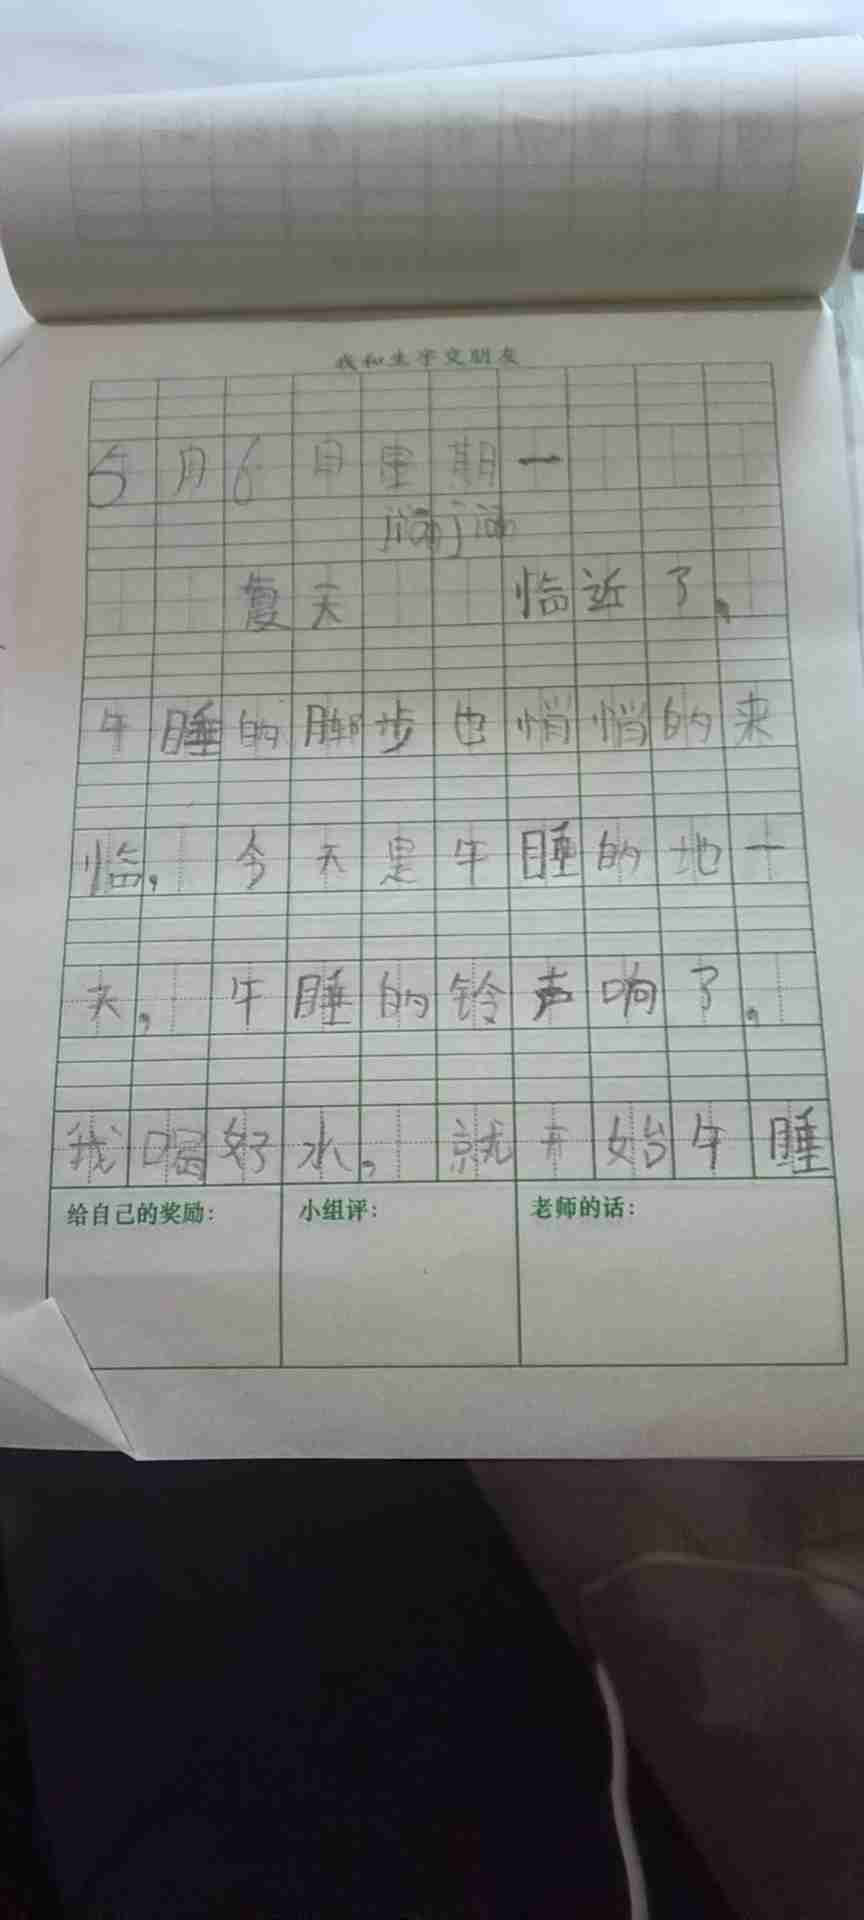 我和生字交朋友
5月6日星期一
jiàn jiàn
夏天 临近了。
午睡的脚步也悄悄的来
临，今天是午睡的地一
天，午睡的铃声响了。
我喝好水，就开始午睡
给自己的奖励： 小组评： 老师的话：